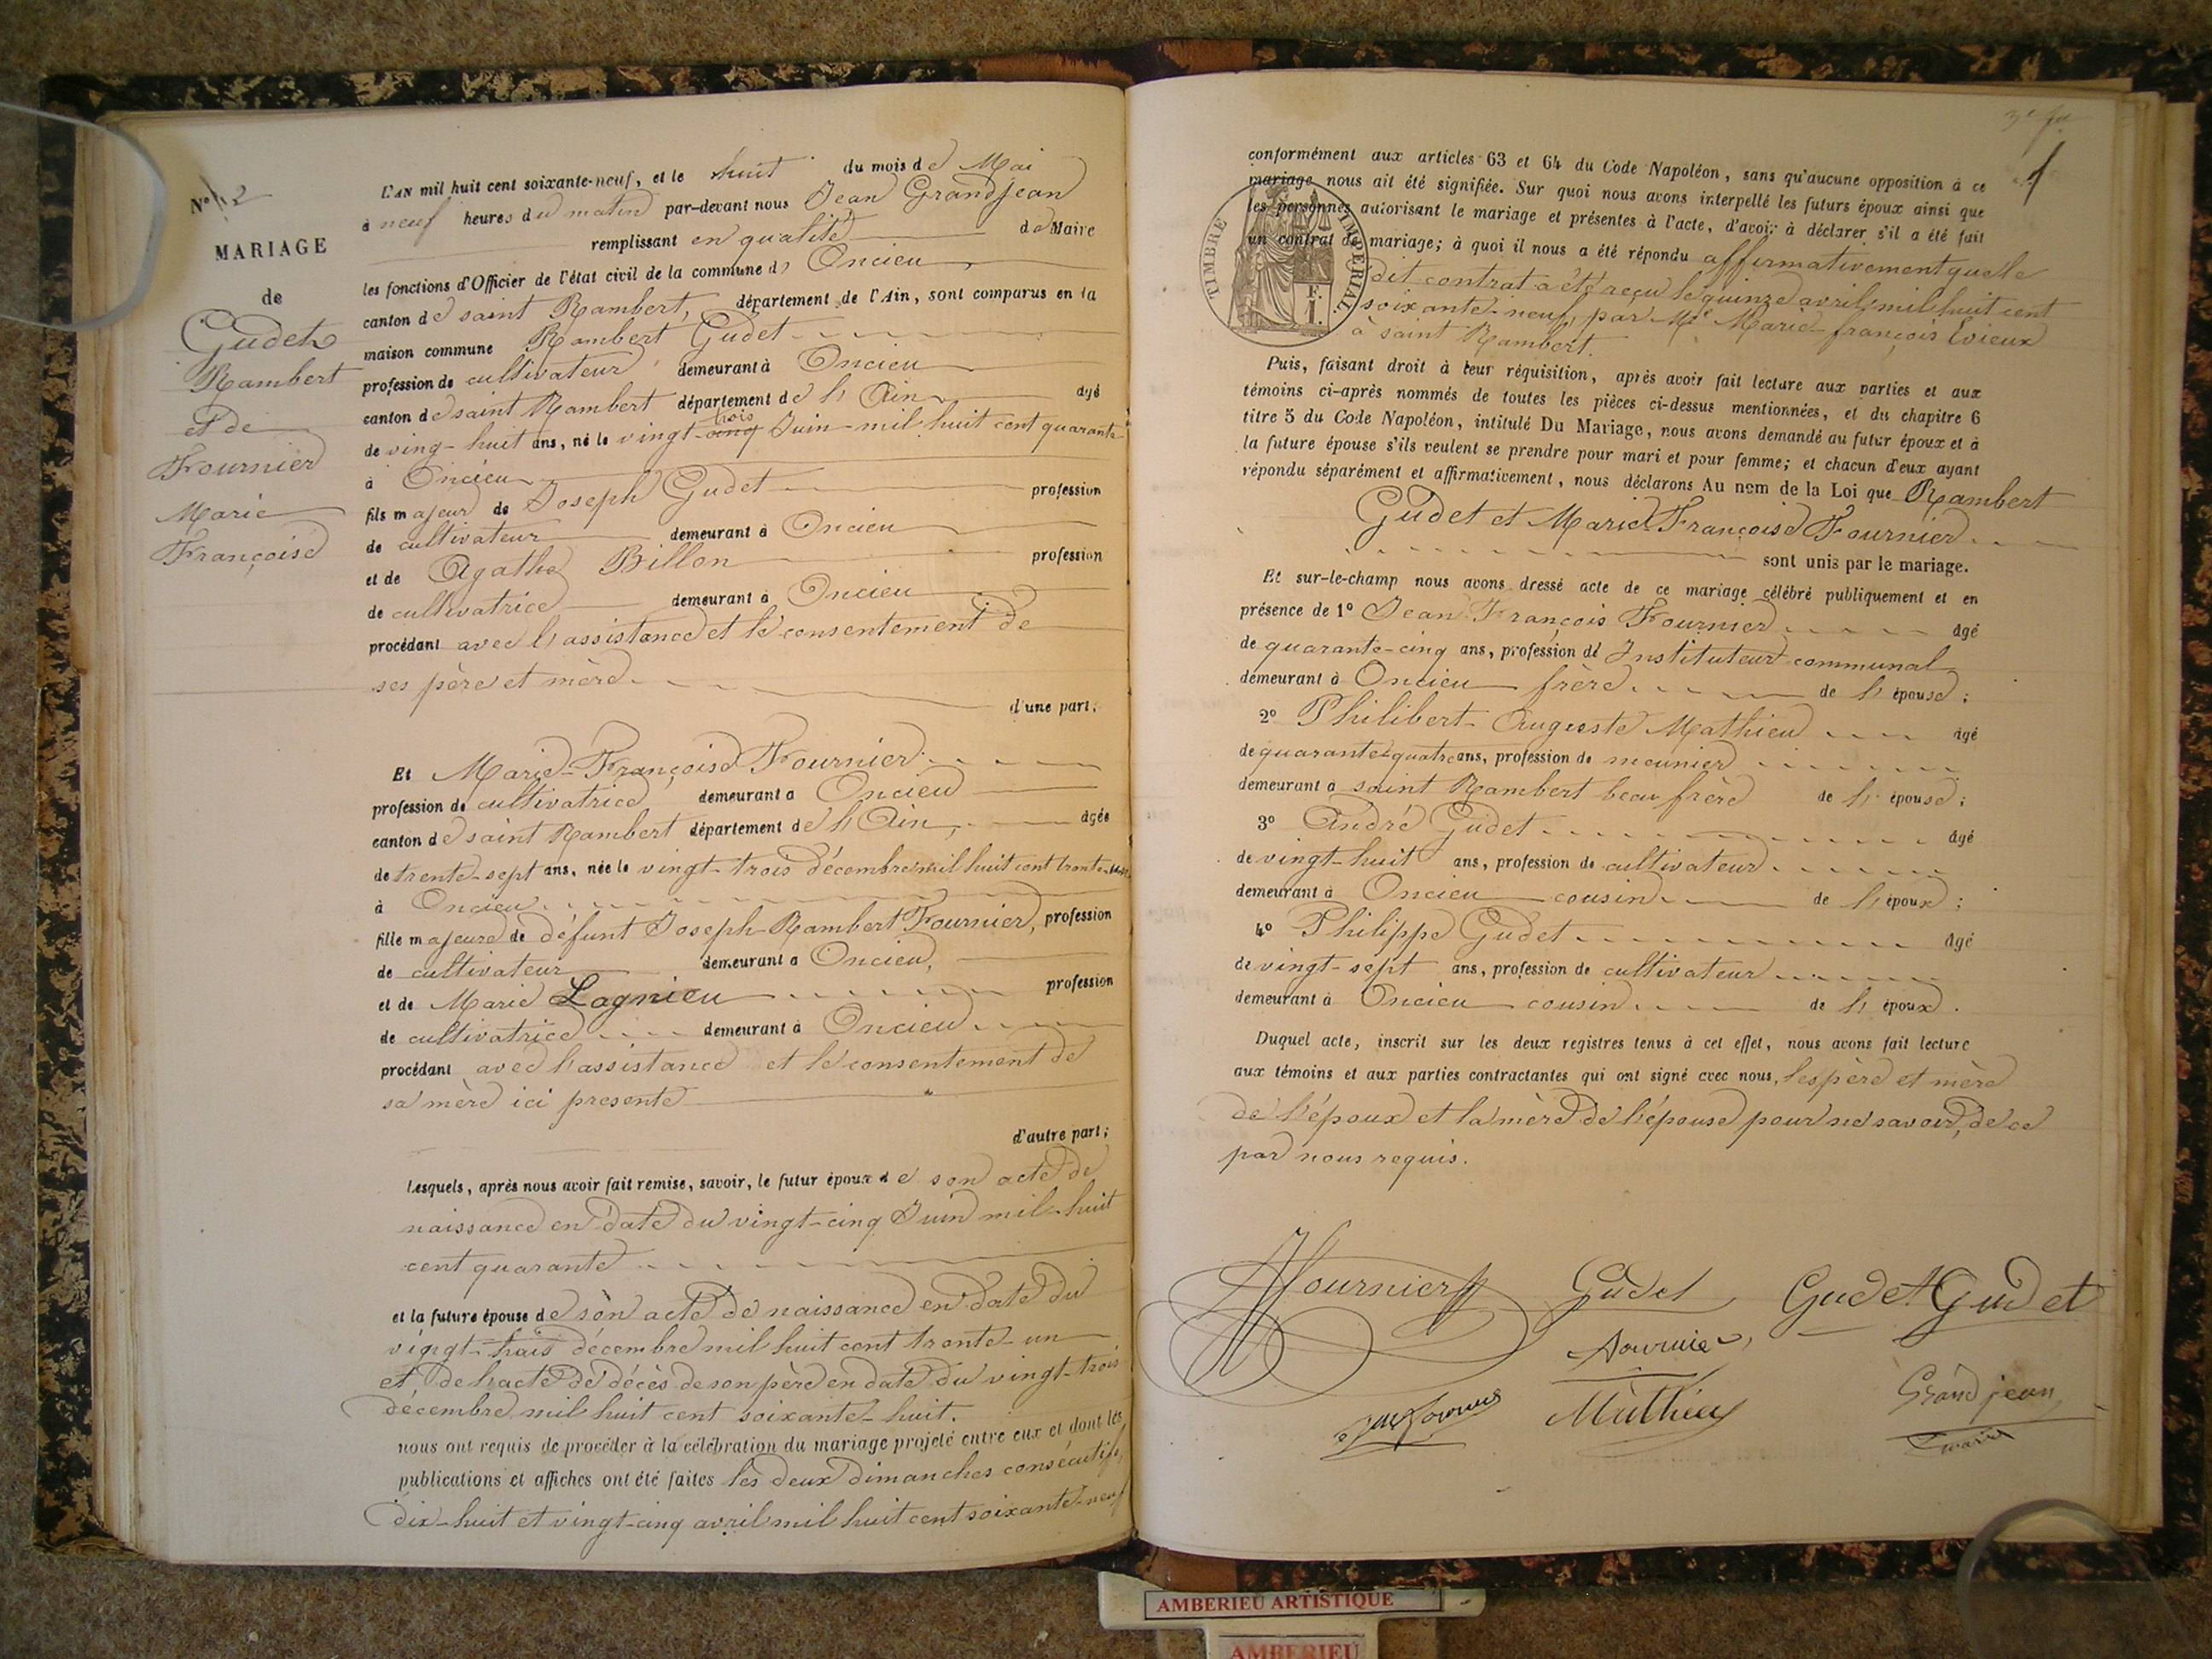 N° 2
MARIAGE
de
Gudet
Rambert
et de
Fournier
Marie
Françoise
L'AN mil huit cent soixante-neuf, et le huit du mois de Mai
à neuf heures du matin par-devant nous Jean Grandjean
remplissant en qualité de Maire
les fonctions d'Officier de l'état civil de la commune d' Oncieu
canton de saint Rambert, département de l'Ain, sont comparus en la
maison commune Rambert Gudet
profession de cultivateur demeurant à Oncieu
canton de saint Rambert département de l'Ain agé
de ving-huit ans, né le vingt-cinq trois Juin mil huit cent quarante
à Oncieu
fils majeur de Joseph Gudet profession
de cultivateur demeurant à Oncieu
et de Agathe Billon profession
de cultivatrice demeurant à Oncieu
procédant avec l'assistance et le consentement de
ses père et mère
d'une part;
Et Marie-Françoise Fournier
profession de cultivatrice demeurant à Oncieu
canton de saint Rambert département de l'Ain, agée
de trente-sept ans, née le vingt-trois décembre mil huit cent trente-un
à Oncieu
fille majeure de défunt Joseph-Rambert Fournier, profession
de cultivateur demeurant à Oncieu,
et de Marie Lagnieu profession
de cultivatrice demeurant à Oncieu
procédant avec l'assistance et le consentement de
sa mère ici presente
d'autre part;
Lesquels, après nous avoir fait remise, savoir, le futur époux de son acte de
naissance en date du vingt-cinq Juin mil-huit
cent quarante
et la future épouse de son acte de naissance en date du
vingt-trois décembre mil huit cent trente-un
et de l'acte de décès de son père en date du vingt-trois
décembre mil huit cent soixante-huit.
nous ont requis de procéder à la célébration du mariage projeté entre eux et dont les
publications et affiches ont été faites les deux dimanches consécutifs,
dix-huit et vingt-cinq avril mil huit cent soixante-neuf
conformément aux articles 63 et 64 du Code Napoléon, sans qu'aucune opposition à ce
mariage nous ait été signifiée. Sur quoi nous avons interpellé les futurs époux ainsi que
les personnes autorisant le mariage et présentes à l'acte, d'avoir à déclarer s'il a été fait
un contrat de mariage; à quoi il nous a été répondu affirmativement que le
dit contrat a été reçu le quinze avril mil huit cent
soixante-neuf, par Me Marie-françois Evieux
à saint Rambert.
TIMBRE IMPÉRIAL
F.
1.
Puis, faisant droit à leur réquisition, après avoir fait lecture aux parties et aux
témoins ci-après nommés de toutes les pièces ci-dessus mentionnées, et du chapitre 6
titre 5 du Code Napoléon, intitulé Du Mariage, nous avons demandé au futur époux et à
la future épouse s'ils veulent se prendre pour mari et pour femme; et chacun d'eux ayant
répondu séparément et affirmativement, nous déclarons Au nom de la Loi que Rambert
Gudet et Marie-Françoise Fournier
sont unis par le mariage.
Et sur-le-champ nous avons dressé acte de ce mariage célébré publiquement et en
présence de 1° Jean François Fournier agé
de quarante-cinq ans, profession de Instituteur communal
demeurant à Oncieu frère de l'épouse;
2° Philibert-Auguste Mathieu agé
de quarante-quatre ans, profession de meunier
demeurant à saint Rambert beau frère de l'épouse;
3° André Gudet agé
de vingt-huit ans, profession de cultivateur
demeurant à Oncieu cousin de l'époux;
4° Philippe Gudet agé
de vingt-sept ans, profession de cultivateur
demeurant à Oncieu cousin de l'époux.
Duquel acte, inscrit sur les deux registres tenus à cet effet, nous avons fait lecture
aux témoins et aux parties contractantes qui ont signé avec nous, les père et mère
de l'époux et la mère de l'épouse pour ne savoir, de ce
par nous requis.
Fournier Gudet Gudet Gudet
Fournier
Mathieu Grandjean
maire
AMBERIEU ARTISTIQUE
AMBERIEU